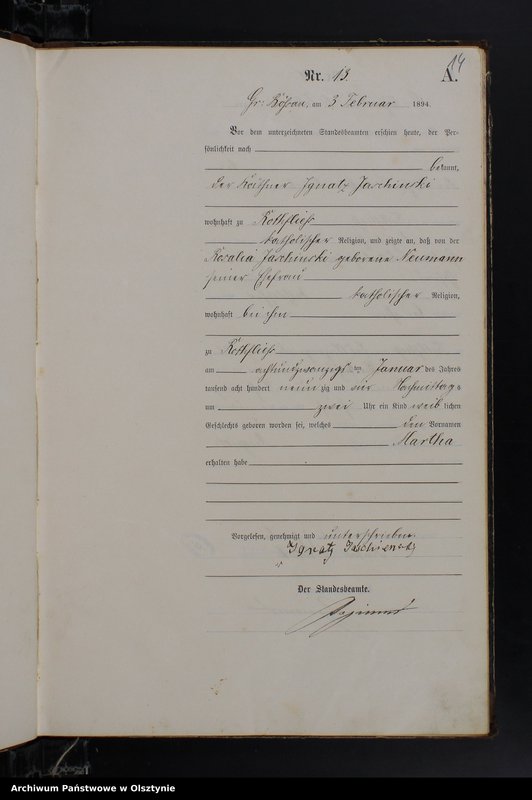 14
Nr. 13. A.
Gr: Kößau, am 3 Februar 1894.
Vor dem unterzeichneten Standesbeamten erschien heute, der Per-
sönlichkeit nach
bekannt,
der Käthner Ignatz Jaschinski
wohnhaft zu Rothfließ
katholischer Religion, und zeigte an, daß von der
Rosalia Jaschinski geborene Neumann
seiner Ehefrau
katholischer Religion,
wohnhaft bei ihm
zu Rothfließ
am achtundzwanzigs ten Januar des Jahres
tausend acht hundert neun zig und vier Nachmittags
um zwei Uhr ein Kind weib lichen
Geschlechts geboren worden sei, welches den Vornamen
Martha
erhalten habe
Vorgelesen, genehmigt und unterschrieben.
Ignatz
Der Standesbeamte.
Archiwum Państwowe w Olsztynie